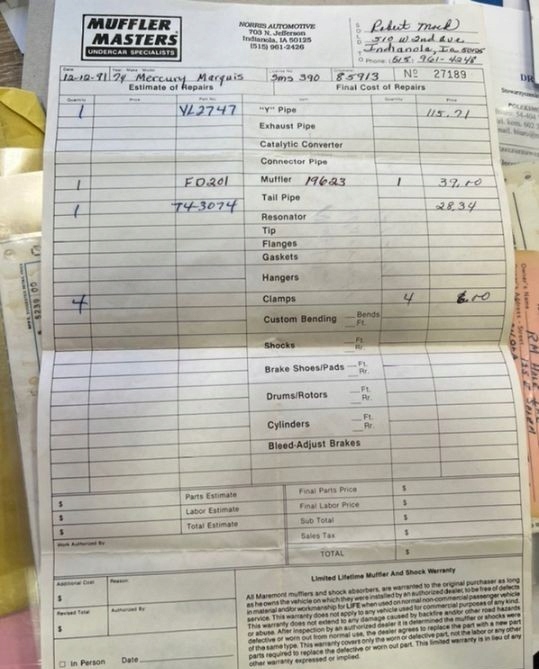 MUFFLER
MASTERS
UNDERCAR SPECIALISTS
NORRIS AUTOMOTIVE
703 N. Jefferson
Indianola, IA 50125
(515) 961-2426
SOLD TO
Robert Mock
510 W 2nd Ave
Indianola, Ia 50125
Phone: 515-961-4248
Date
Year Make Model
License No
Odometer
12-12-91 74 Mercury Marquis 390 85913 No 27189
Estimate of Repairs Final Cost of Repairs
Quantity Price Part No. Item Quantity Price
1 VL2747 "Y" Pipe 115.71
Exhaust Pipe
Catalytic Converter
Connector Pipe
1 FD201 Muffler 19623 1 39.00
Tail Pipe
1 T43074 28.34
Resonator
Tip
Flanges
Gaskets
Hangers
4 Clamps 4 6.00
Custom Bending __ Bends
__ Ft.
Shocks __ Ft.
__ Rr.
Brake Shoes/Pads __ Ft.
__ Rr.
Drums/Rotors __ Ft.
__ Rr.
Cylinders __ Ft.
__ Rr.
Bleed-Adjust Brakes
$ Parts Estimate Final Parts Price $
$ Labor Estimate Final Labor Price $
$ Total Estimate Sub Total $
Work Authorized By Sales Tax $
TOTAL $
Additional Cost Reason
$
Revised Total Authorized By
$
In Person Date
Limited Lifetime Muffler And Shock Warranty
All Maremont mufflers and shock absorbers, are warranted to the original purchaser as long
as he owns the vehicle on which they were installed by an authorized dealer, to be free of defects
in material and/or workmanship for LIFE when used on normal non-commercial passenger vehicle
service. This warranty does not apply to any vehicle used for commercial purposes of any kind.
This warranty does not extend to any damage caused by backfire and/or other road hazards
or abuse. After inspection by an authorized dealer it is determined the muffler or shocks were
defective or worn out from normal use, the dealer agrees to replace the part with a new part
of the same type. This warranty covers only the worn or defective part, not the labor or any other
parts required to replace the defective or worn out part. This limited warranty is in lieu of
other warranty expressed or implied.
$239.00
Owner's Name